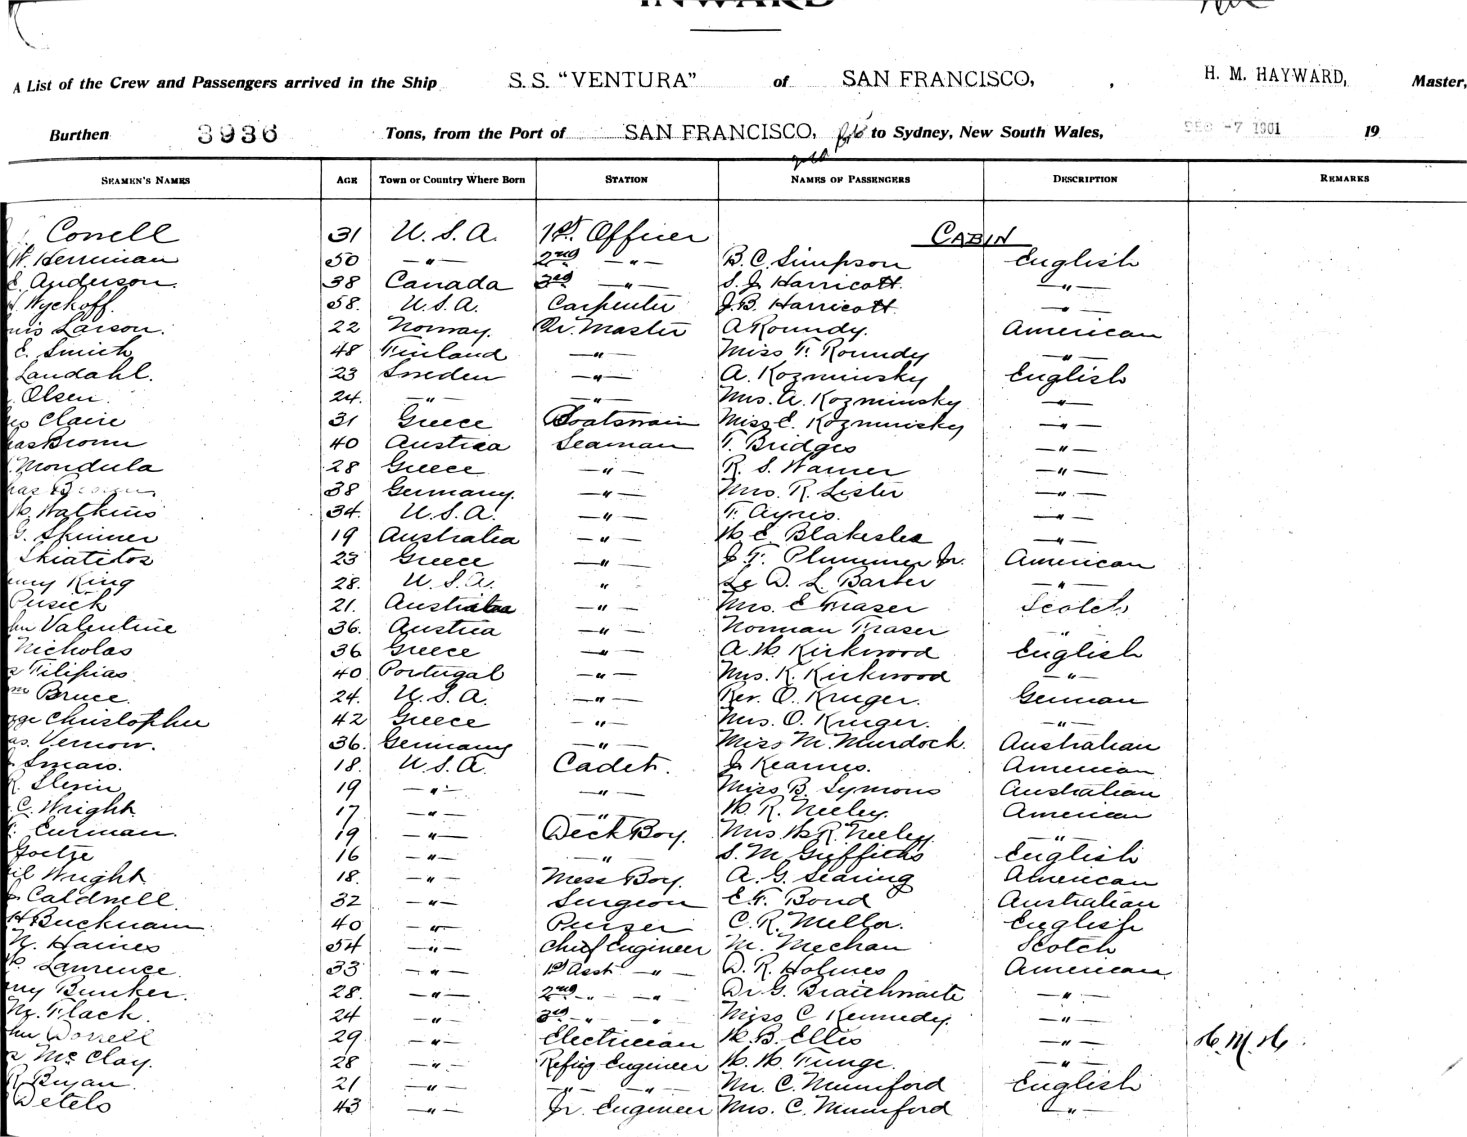 INWARD
A List of the Crew and Passengers arrived in the Ship S. S. "VENTURA" of SAN FRANCISCO, , H. M. HAYWARD, Master,
Burthen 3936 Tons, from the Port of SAN FRANCISCO, via to Sydney, New South Wales, DEC -7 1901 19
SEAMEN'S NAMES AGE Town or Country Where Born STATION NAMES OF PASSENGERS DESCRIPTION REMARKS
Correll 31 U. S. A. 1st. Officer CABIN
W. Herriman 50 —"— 2nd —"— B. C. Simpson English
E. Anderson. 38 Canada 3rd —"— S. J. Harricott —"—
H. Wyckoff. 58. U. S. A. Carpenter J. B. Harricott —"—
Larson. 22 Norway. Qr. Master A Roundy. American
E. Smith 48 Finland —"— Miss F. Roundy —"—
Landahl. 23 Sweden —"— A. Kozminsky English
Olsen. 24. —"— —"— Mrs. A. Kozminsky —"—
Claire 31 Greece Boatswain Miss E. Kozminsky —"—
has Brown 40 Austria Seaman F. Bridges —"—
Mondula 28 Greece —"— R. S. Warner —"—
has 38 Germany. —"— Mrs. R. Lister —"—
Watkins 34. U. S. A. —"— F. Ayris. —"—
G. Skinner 19 Australia —"— W. E. Blakeslee —"—
Skiatitos 23 Greece —"— J. F. Plummer Jr. American
King 28. U. S. A. " Le D. L. Barber —"—
Pusick 21. Australia —"— Mrs. E Fraser Scotch
Valentine 36. Austria —"— Norman Fraser "
Nicholas 36 Greece —"— A. W. Kirkwood English
Filipias. 40. Portugal —"— Mrs. K. Kirkwood —"—
Bruce 24. U. S. A. —"— Rev. O. Kruger. German
Christopher 42 Greece —"— Mrs. O. Kruger. —"—
as. Vernow. 36. Germany —"— Miss M. Murdock. Australian
18. U. S. A. Cadet. J. Kearnes. American
R. Slevin 19 —"— —"— Miss B. Symons Australian
C. Wright 17 —"— —"— W. R. Neeley. American
Eurman. 19 —"— Deck Boy. Mrs. W. R. Neeley. —"—
Goetze 16 —"— —"— S. M. Griffiths English
Wright 18. —"— Mess Boy. A. G. Searing American
Caldwell. 32 —"— Surgeon E. F. Bond Australian
H Bucknam 40 —"— Purser C. R. Mellor. English
N. Haines 54 —"— Chief Engineer M. Mechan Scotch
Lawrence. 33 —"— 1st Asst —"— D. R. Holmes American
Bunker. 28. —"— 2nd " " Dr G. Braithwaite —"—
Flack. 24 —"— 3rd " " Miss C Kennedy. —"—
Dorrell 29 —"— Electrician W. B. Ellis —"— H. M. H.
Mc Clay. 28 —"— Refrig Engineer W. W. Funge. —"—
R Bryan. 21 —"— —"— —"— Mr. C. Mumford English
Detels 43 —"— Jr. Engineer Mrs. C. Mumford —"—